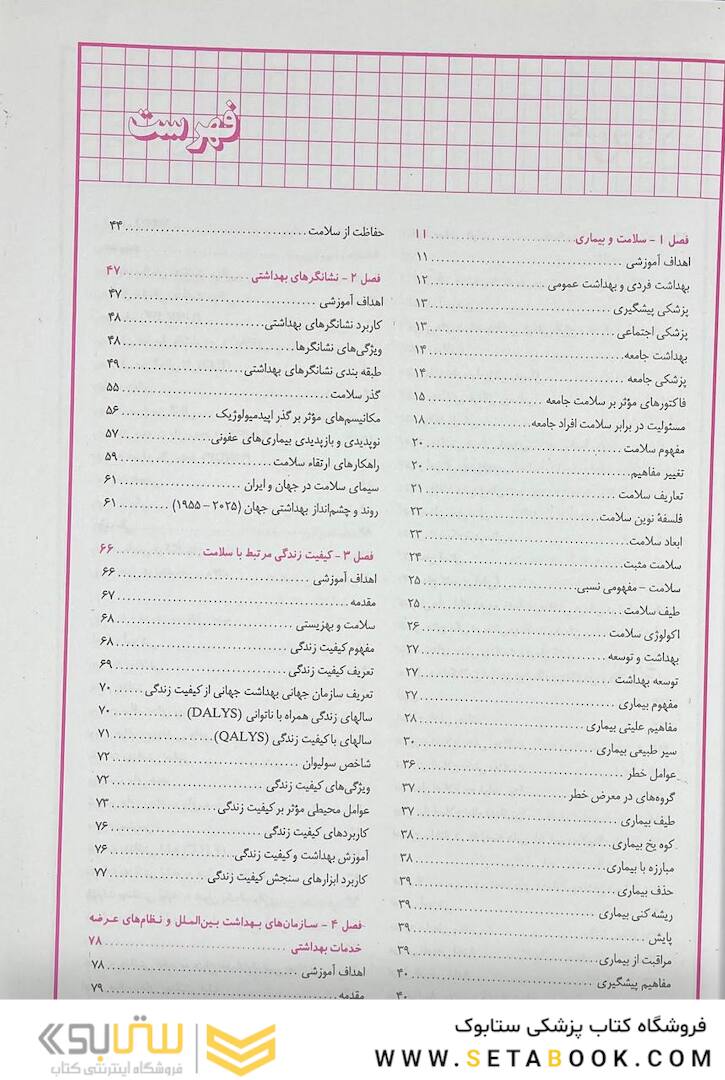 فهرست
فصل ۱ - سلامت و بیماری ۱۱
اهداف آموزشی ۱۱
بهداشت فردی و بهداشت عمومی ۱۲
پزشکی پیشگیری ۱۳
پزشکی اجتماعی ۱۳
بهداشت جامعه ۱۴
پزشکی جامعه ۱۴
فاکتورهای مؤثر بر سلامت جامعه ۱۵
مسئولیت در برابر سلامت افراد جامعه ۱۸
مفهوم سلامت ۲۰
تغییر مفاهیم ۲۰
تعاریف سلامت ۲۱
فلسفهٔ نوین سلامت ۲۳
ابعاد سلامت ۲۳
سلامت مثبت ۲۴
سلامت - مفهومی نسبی ۲۵
طیف سلامت ۲۵
اکولوژی سلامت ۲۶
بهداشت و توسعه ۲۷
توسعه بهداشت ۲۷
مفهوم بیماری ۲۷
مفاهیم علیتی بیماری ۲۸
سیر طبیعی بیماری ۳۰
عوامل خطر ۳۶
گروه‌های در معرض خطر ۳۷
طیف بیماری ۳۷
کوه یخ بیماری ۳۸
مبارزه با بیماری ۳۸
حذف بیماری ۳۹
ریشه کنی بیماری ۳۹
پایش ۳۹
مراقبت از بیماری ۳۹
مفاهیم پیشگیری ۴۰
۴۰
حفاظت از سلامت ۴۴
فصل ۲ - نشانگرهای بهداشتی ۴۷
اهداف آموزشی ۴۷
کاربرد نشانگرهای بهداشتی ۴۸
ویژگی‌های نشانگرها ۴۸
طبقه بندی نشانگرهای بهداشتی ۴۹
گذر سلامت ۵۵
مکانیسم‌های مؤثر بر گذر اپیدمیولوژیک ۵۶
نوپدیدی و بازپدیدی بیماری‌های عفونی ۵۷
راهکارهای ارتقاء سلامت ۵۹
سیمای سلامت در جهان و ایران ۶۱
روند و چشم‌انداز بهداشتی جهان (۲۰۲۵ - ۱۹۵۵) ۶۱
فصل ۳ - کیفیت زندگی مرتبط با سلامت ۶۶
اهداف آموزشی ۶۶
مقدمه ۶۷
سلامت و بهزیستی ۶۸
مفهوم کیفیت زندگی ۶۸
تعریف کیفیت زندگی ۶۹
تعریف سازمان جهانی بهداشت جهانی از کیفیت زندگی ۷۰
سالهای زندگی همراه با ناتوانی (DALYS) ۷۰
سالهای با کیفیت زندگی (QALYS) ۷۱
شاخص سولیوان ۷۲
ویژگی‌های کیفیت زندگی ۷۲
عوامل محیطی مؤثر بر کیفیت زندگی ۷۳
کاربردهای کیفیت زندگی ۷۶
آموزش بهداشت و کیفیت زندگی ۷۶
کاربرد ابزارهای سنجش کیفیت زندگی ۷۷
فصل ۴ - سازمان‌های بهداشت بین‌الملل و نظام‌های عرضه
خدمات بهداشتی ۷۸
اهداف آموزشی ۷۸
مقدمه ۷۹
فروشگاه کتاب پزشکی ستابوک
WWW.SETABOOK.COM
ستابوک
فروشگاه اینترنتی کتاب